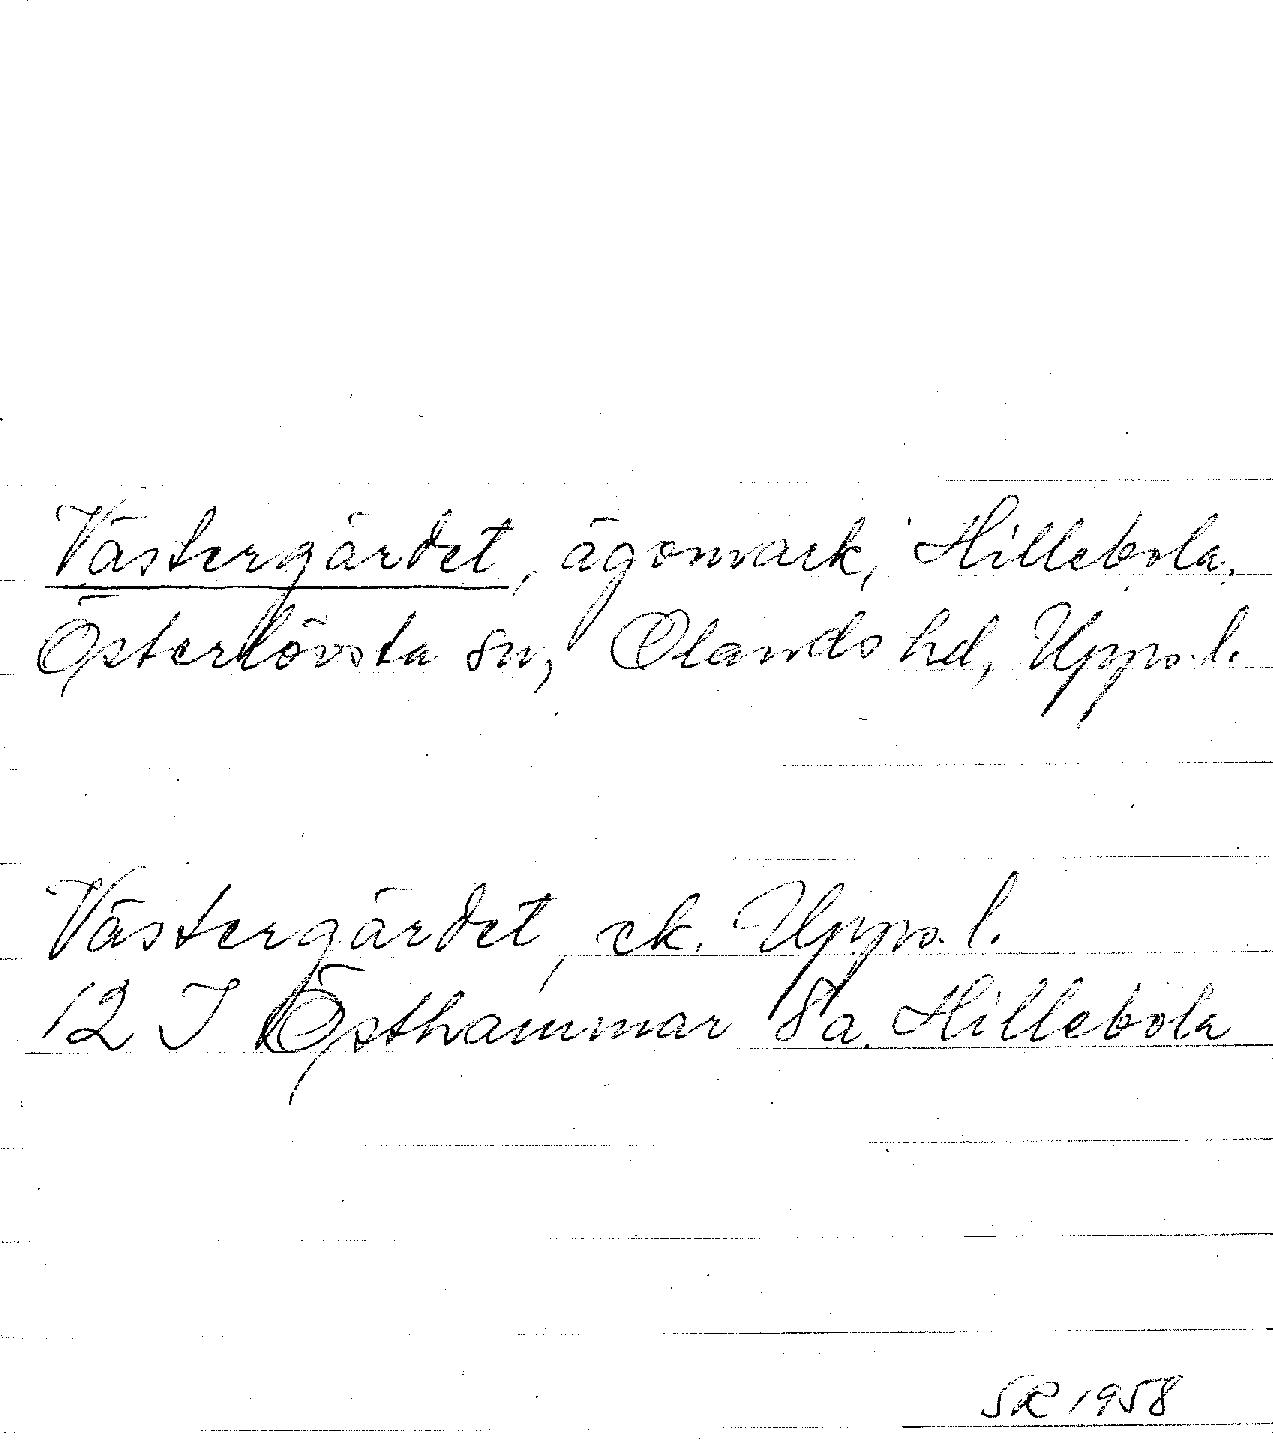 Västergärdet, ägomark, Hillebola,
Österlövsta sn, Olands hd, Upps.l.
Västergärdet, ek. Upps.l.
12 I Östhammar 8a. Hillebola
SR 1958